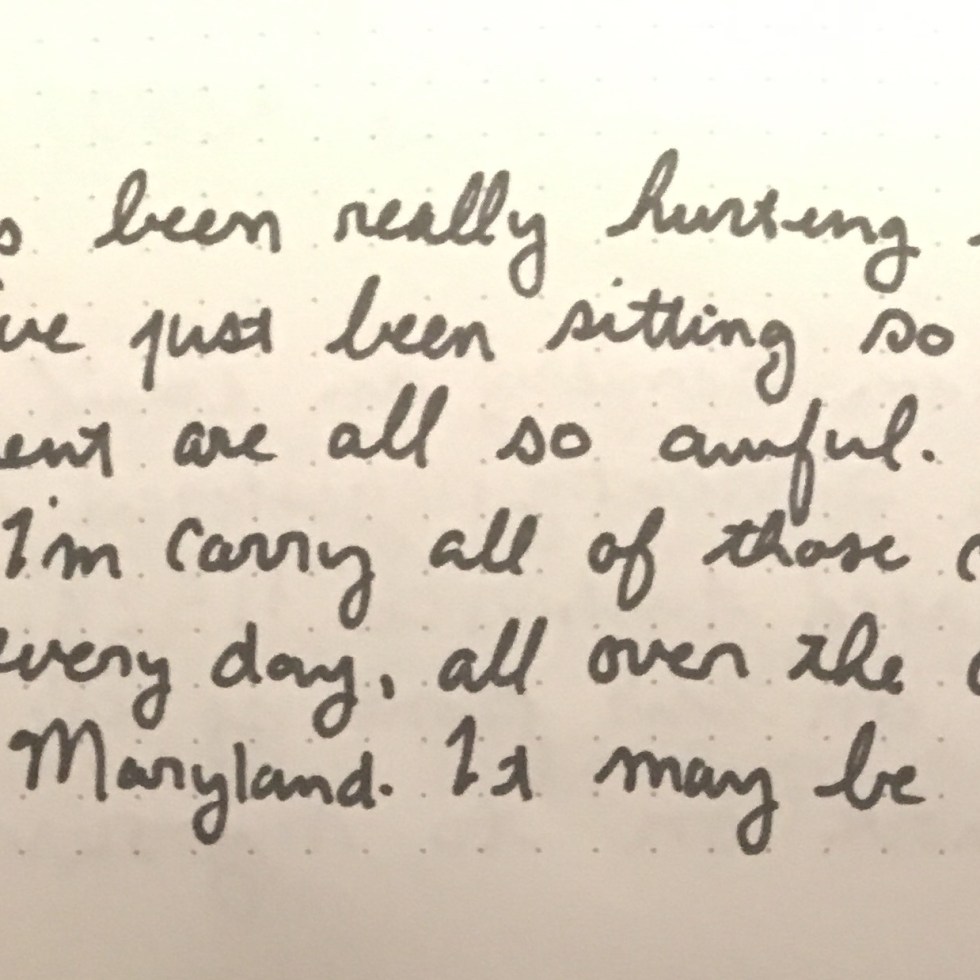 s been really hurting
've just been sitting so
ent are all so awful.
I'm carry all of those
every day, all over the
Maryland. It may be